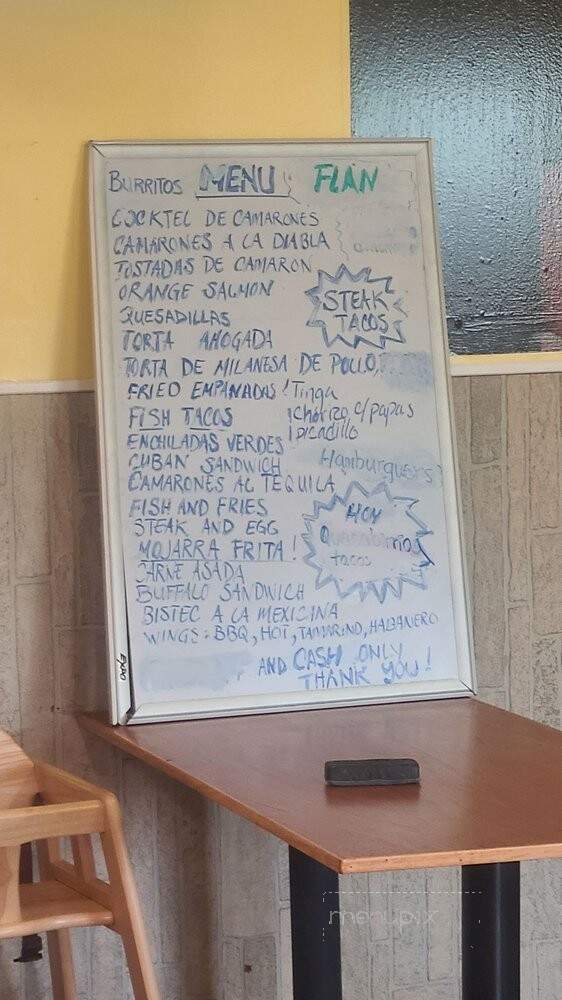 BURRITOS MENU FLAN
COCKTEL DE CAMARONES
CAMARONES A LA DIABLA
TOSTADAS DE CAMARON
ORANGE SALMON
STEAK
TACOS
QUESADILLAS
TORTA AHOGADA
TORTA DE MILANESA DE POLLO,
FRIED EMPANADAS! Tinga
FISH TACOS
¡Chorizo c/papas
¡picadillo
ENCHILADAS VERDES
CUBAN SANDWICH
Hamburguers
CAMARONES AL TEQUILA
FISH AND FRIES
STEAK AND EGG
HOY
tacos
MOJARRA FRITA!
CARNE ASADA
BUFFALO SANDWICH
BISTEC A LA MEXICINA
WINGS: BBQ, HOT, TAMARIND, HABANERO
AND CASH ONLY
THANK YOU!
EXPO
menupix